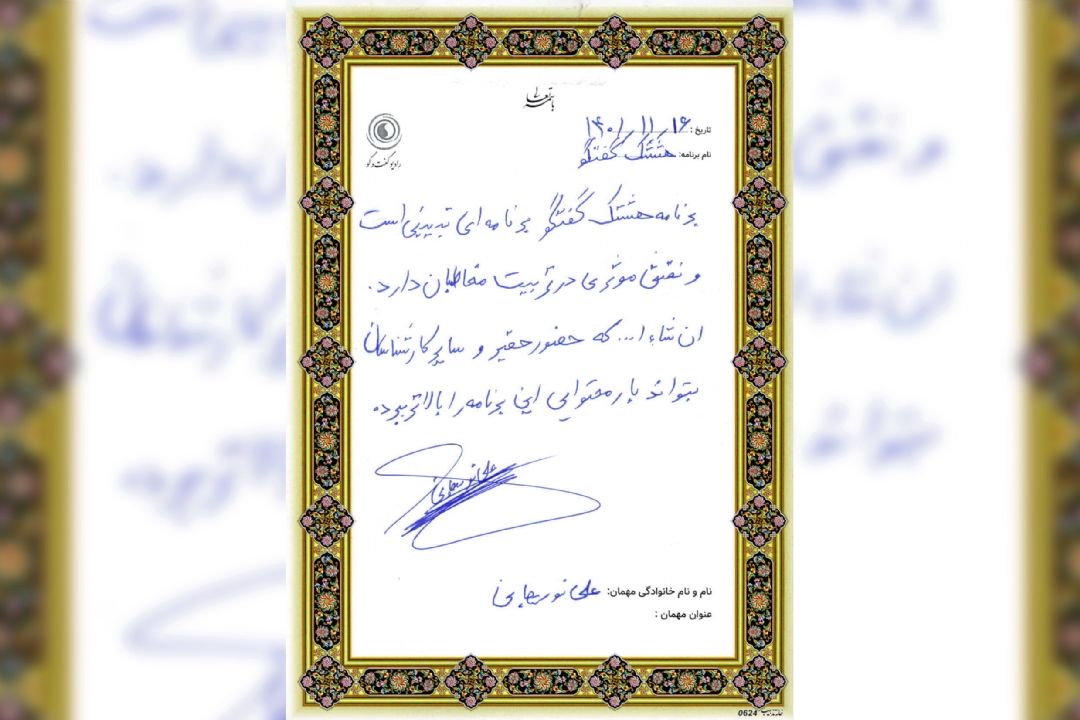 باسمه تعالی
تاریخ: ۱۴۰۱/۱۱/۱۶
نام برنامه: هشتگ گفتگو
رادیو گفت‌وگو
برنامه هشتگ گفتگو برنامه ای تبیینی است
و نقش موثری در تربیت مخاطبان دارد.
ان شاء ا... که حضور حقیر و سایر کارشناسان
بتواند بار محتوایی این برنامه را بالاتر ببرد.
نام و نام خانوادگی مهمان: علی نورهانی
عنوان مهمان :
0624